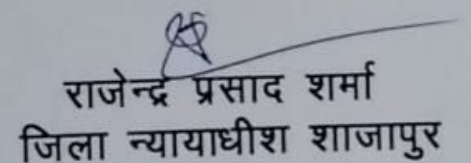 राजेन्द्र प्रसाद शर्मा
जिला न्यायाधीश शाजापुर